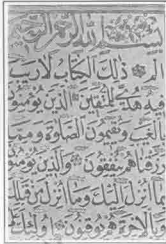 بسم الله الرحمن الرحيم
الم ذلك الكتاب لا ريب
فيه هدى للمتقين الذين يؤمنون
بالغيب ويقيمون الصلوة ومما
رزقناهم ينفقون والذين يؤمنون
بما انزل اليك وما انزل من قبلك
وبالاخرة هم يوقنون اولئك